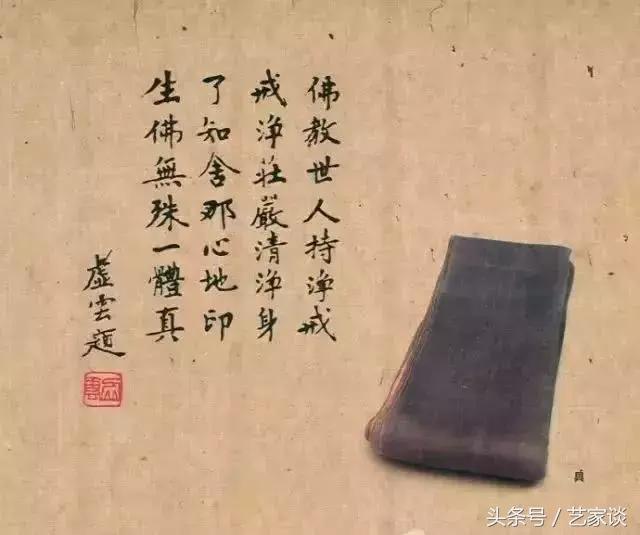 佛教世人持淨戒
戒淨莊嚴清淨身
了知舍那心地印
生佛無殊一體真
虛雲題
頭条号/艺家谈